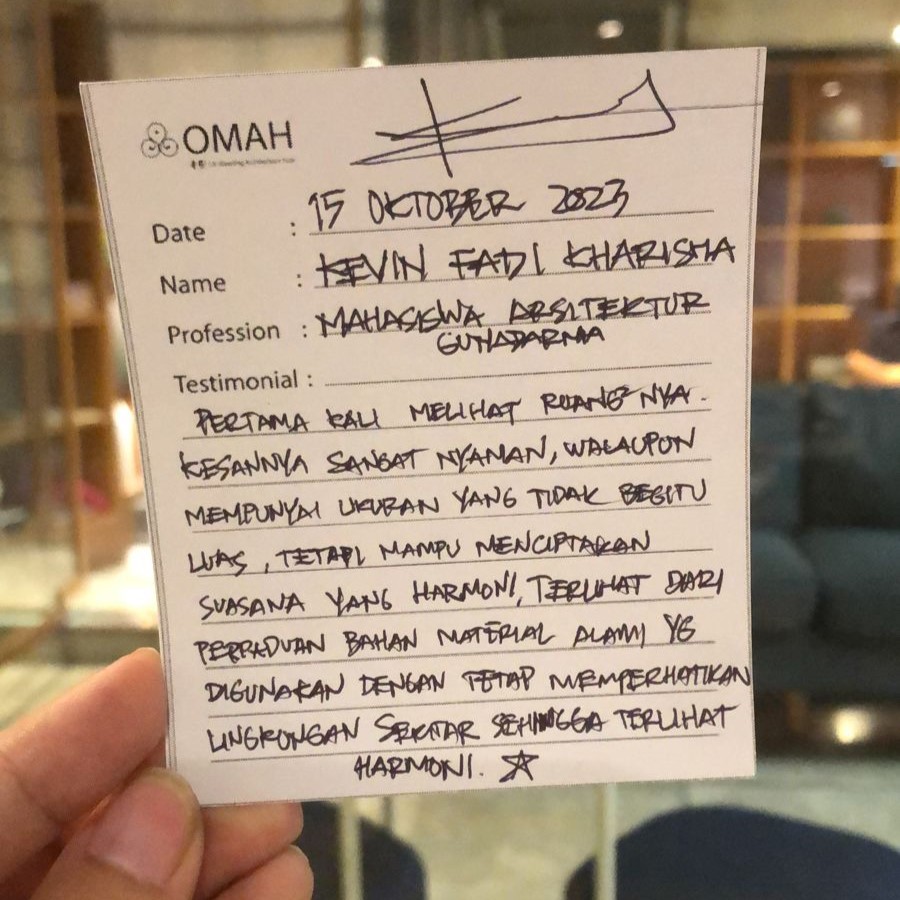 OMAH
Date : 15 OKTOBER 2023
Name : KEVIN FADI KHARISMA
Profession : MAHASISWA ARSITEKTUR
GUNADARMA
Testimonial :
PERTAMA KALI MELIHAT RUANG² NYA.
KESANNYA SANGAT NYAMAN, WALAUPUN
MEMPUNYAI UKURAN YANG TIDAK BEGITU
LUAS, TETAPI MAMPU MENCIPTAKAN
SUASANA YANG HARMONI, TERLIHAT DARI
PERPADUAN BAHAN MATERIAL ALAMI YG
DIGUNAKAN DENGAN TETAP MEMPERHATIKAN
LINGKUNGAN SEKITAR SEHINGGA TERLIHAT
HARMONI.